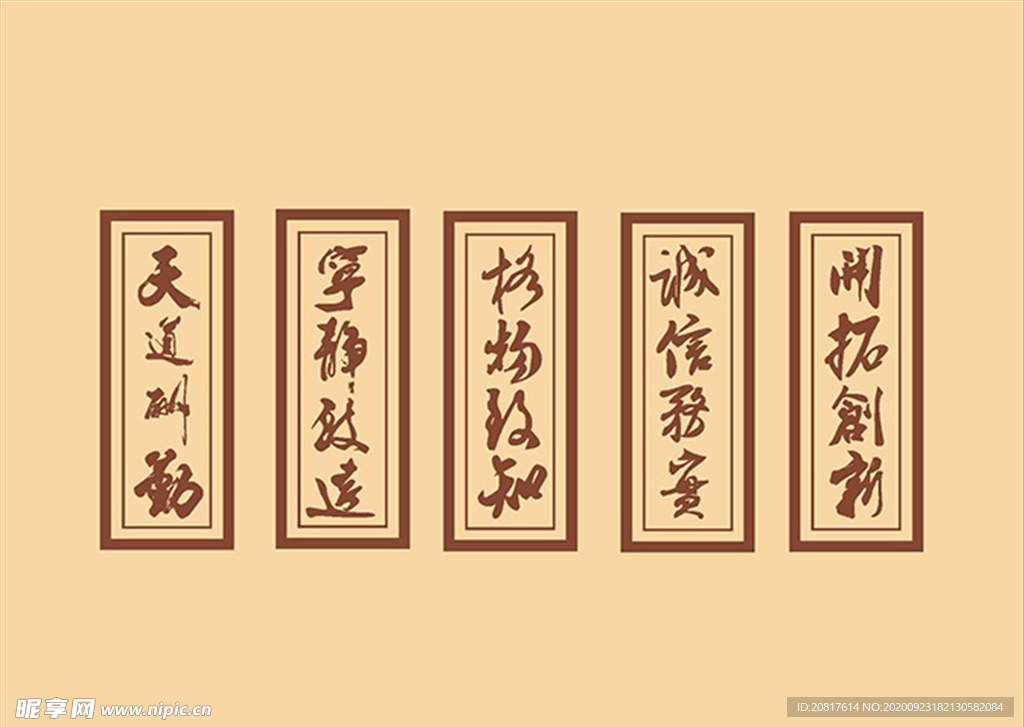 天道酬勤
寧靜致遠
格物致知
誠信務實
開拓創新
昵享网 www.nipic.cn
ID:20817614 NO:20200923182130582084